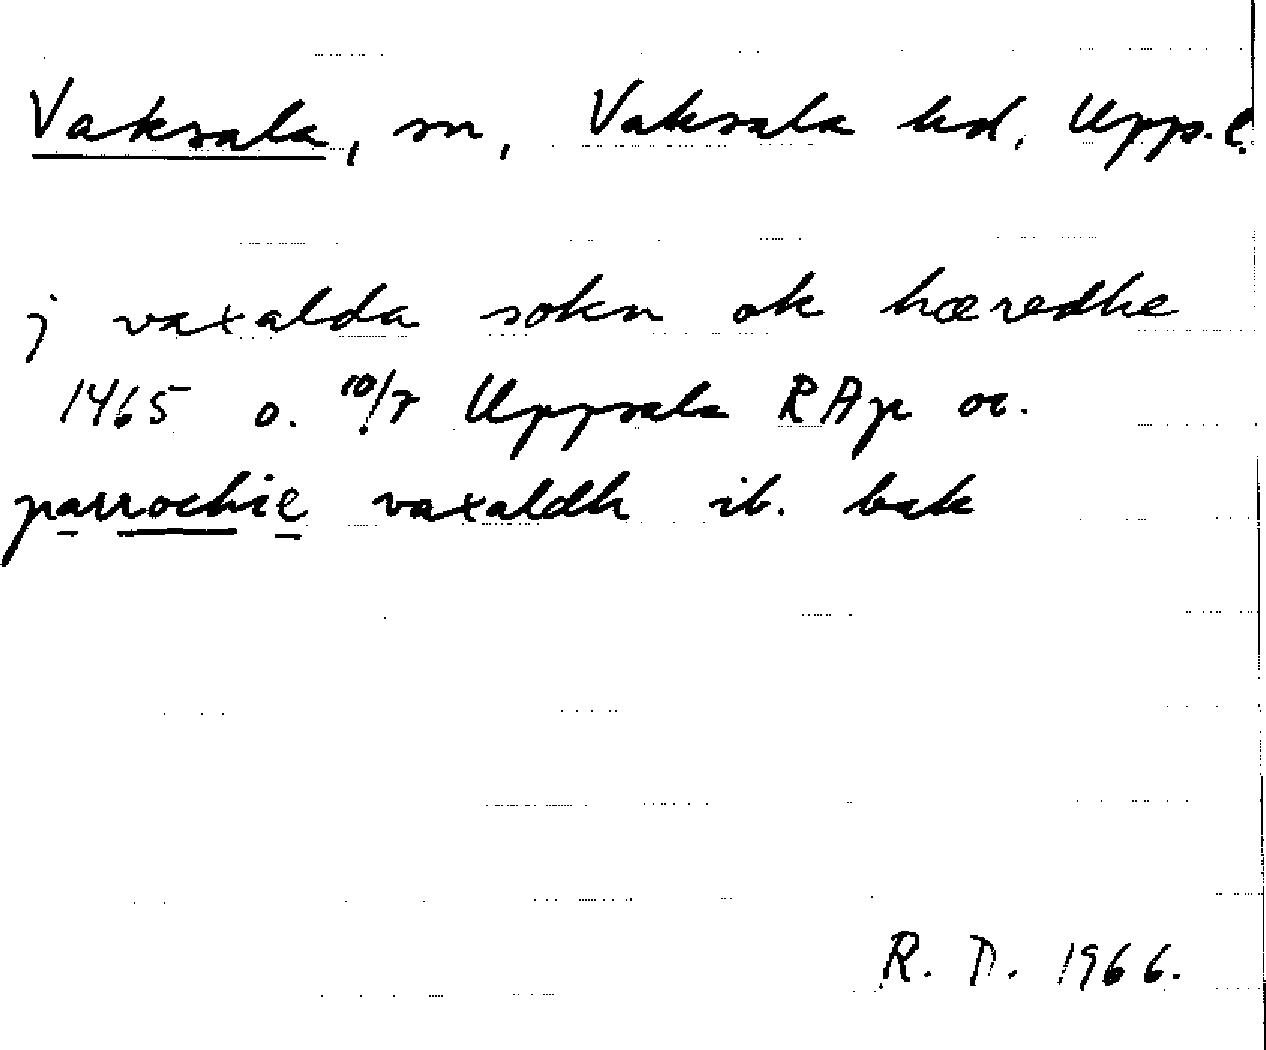 Vaksala, sn, Vaksala hd, Upps. l.
j vaxalda sokn ok hæredhe
1465 o. 10/7 Uppsala RAp or.
parrochie vaxaldh ib. bak
R. D. 1966.